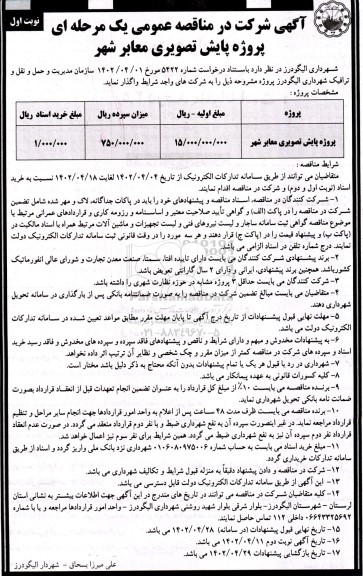 نوبت اول
آگهی شرکت در مناقصه عمومی یک مرحله ای
پروژه پایش تصویری معابر شهر
شهرداری الیگودرز در نظر دارد باستناد درخواست شماره ۵۴۲۲ مورخ ۱۴۰۲/۰۴/۰۱ سازمان مدیریت و حمل و نقل و
ترافیک شهرداری الیگودرز پروژه مشروحه ذیل را به شرکت های واجد شرایط واگذار نماید.
مشخصات پروژه :
پروژه | مبلغ اولیه - ریال | میزان سپرده ریال | مبلغ خرید اسناد ریال
پروژه پایش تصویری معابر شهر | ۱۵/۰۰۰/۰۰۰/۰۰۰ | ۷۵۰/۰۰۰/۰۰۰ | ۱/۰۰۰/۰۰۰
شرایط مناقصه :
متقاضیان می توانند از طریق سامانه تدارکات الکترونیک از تاریخ ۱۴۰۲/۰۴/۰۴ لغایت ۱۴۰۲/۰۴/۱۸ نسبت به خرید
اسناد (نوبت اول و دوم) و شرکت در مناقصه اقدام نمایند.
۱- شرکت کنندگان در مناقصه، اسناد مناقصه و پیشنهادهای خود را باید در پاکات جداگانه، لاک و مهر شده شامل تضمین
شرکت در مناقصه را در پاکت (الف) و گواهی تأیید صلاحیت معتبر و اساسنامه و رزومه کاری و قراردادهای عمرانی مرتبط با
موضوع مناقصه گواهی ثبت سامانه ساجار و لیست نیروهای فنی و لیست تجهیزات و ماشین آلات مرتبط همراه با اسناد مالکیت در
(پاکت ب) و پیشنهاد قیمت را در (پاکت ج) قرار دهند و هر سه مورد را در وقت قانونی ثبت سامانه تدارکات الکترونیک دولت
نمایند. درج شماره تلفن در اسناد الزامی می باشد.
۲- برند پیشنهادی شرکت کنندگان می بایست دارای تاییده افتا، سمتا، صنعت معدن تجارت و شورای عالی انفورماتیک
کشور باشد. همچنین برند پیشنهادی، ایرانی و دارای ۲ سال گارانتی تعویض باشد.
۳- شرکت کنندگان می بایست حداقل ۳ پروژه مشابه در حوزه نظارت شهری را داشته باشد.
۴- متقاضیان می بایست مبالغ تضمین شرکت در مناقصه را به صورت ضمانتنامه بانکی پس از بارگذاری در سامانه تحویل
شهرداری دهند.
۵- مهلت نهایی قبول پیشنهادات از تاریخ درج آگهی تا پایان مهلت مقرر مطابق مواعد تعیین شده در سامانه تدارکات
الکترونیک دولت می باشد.
۶- به پیشنهادات مخدوش و مبهم و دارای شرایط و ناقص و پیشنهادهای فاقد سپرده و سپرده های مخدوش و فاقد رسید خرید
اسناد و سپرده های شرکت در مناقصه کمتر از میزان مقرر و چک شخصی و نظایر آن ترتیب اثر داده نخواهد.
۷- شهرداری در رد یا قبول هر یک یا تمام پیشنهادات بدون آنکه محتاج به ذکر دلیل باشد مختار است.
۸- کلیه کسورات قانونی به عهده پیمانکار می باشد.
۹- برنده مناقصه می بایست ۱۰٪ از مبلغ کل قرارداد را به عنوان تضمین انجام تعهدات قبل از انعقاد قرارداد بصورت
ضمانت نامه بانکی تحویل شهرداری نماید.
۱۰- برنده مناقصه می بایست ظرف مدت ۴۸ ساعت پس از اعلام به واحد امور قراردادها جهت انجام سایر مراحل و تنظیم
قرارداد مراجعه نماید. در غیر اینصورت سپرده آن به نفع شهرداری ضبط و با نفر دوم قرارداد منعقد می گردد. در صورت عدم انعقاد
قرارداد نفر دوم سپرده آن نیز به نفع شهرداری ضبط می گردد. همین شرایط برای نفر سوم نیز اعمال خواهد شد.
۱۱- مبلغ خرید اسناد می بایست به حساب شماره ۰۱۰۶۰۸۰۹۷۵۰۰۶ شهرداری نزد بانک ملی واریز گردد و اسناد از طریق
سامانه تدارکات خریداری گردد.
۱۲- شرکت در مناقصه و دادن پیشنهاد دقیقاً به منزله قبول شرایط و تکالیف شهرداری می باشد.
۱۳- این آگهی از طریق سامانه تدارکات الکترونیک دولت قابل دسترسی می باشد.
۱۴- کلیه متقاضیان شرکت در مناقصه می توانند در تاریخ های مندرج در این آگهی جهت اطلاعات بیشتر به نشانی استان
لرستان - شهرستان الیگودرز - بلوار شرقی بلوار شهید روشنی شهرداری الیگودرز - واحد امور قراردادها مراجعه و یا با شماره
۰۶۶۴۳۳۲۵۶۹۲ داخلی ۱۱۲ تماس حاصل نمایند.
۱۵- تاریخ نهایی قبول پیشنهادات (در سامانه) ۱۴۰۲/۰۴/۲۸ می باشد.
۱۶- تاریخ آگهی نوبت دوم ۱۴۰۲/۰۴/۱۱ می باشد.
۱۷- تاریخ بازگشایی پیشنهادات ۱۴۰۲/۰۴/۲۹ می باشد.
علی میرزا یسحاقی - شهردار الیگودرز